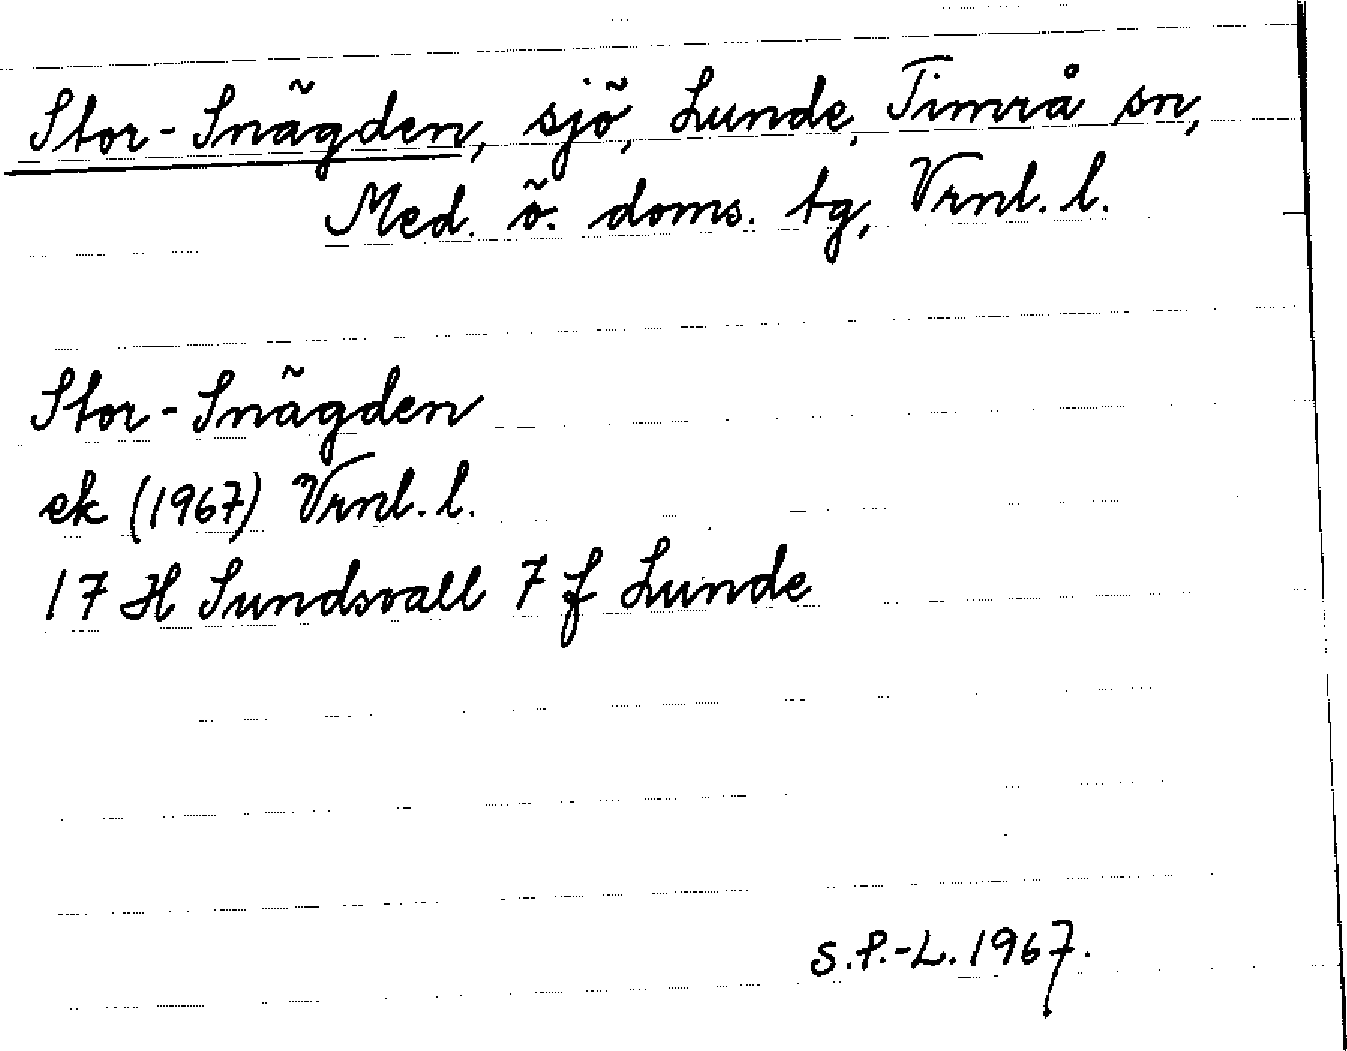 Stor-Snägden, sjö, Lunde, Timrå sn,
Med. ö. doms. tg, Vrnl. l.
Stor-Snägden
ek (1967) Vrnl. l.
17 H Sundsvall 7 f Lunde
S.P.-L. 1967.